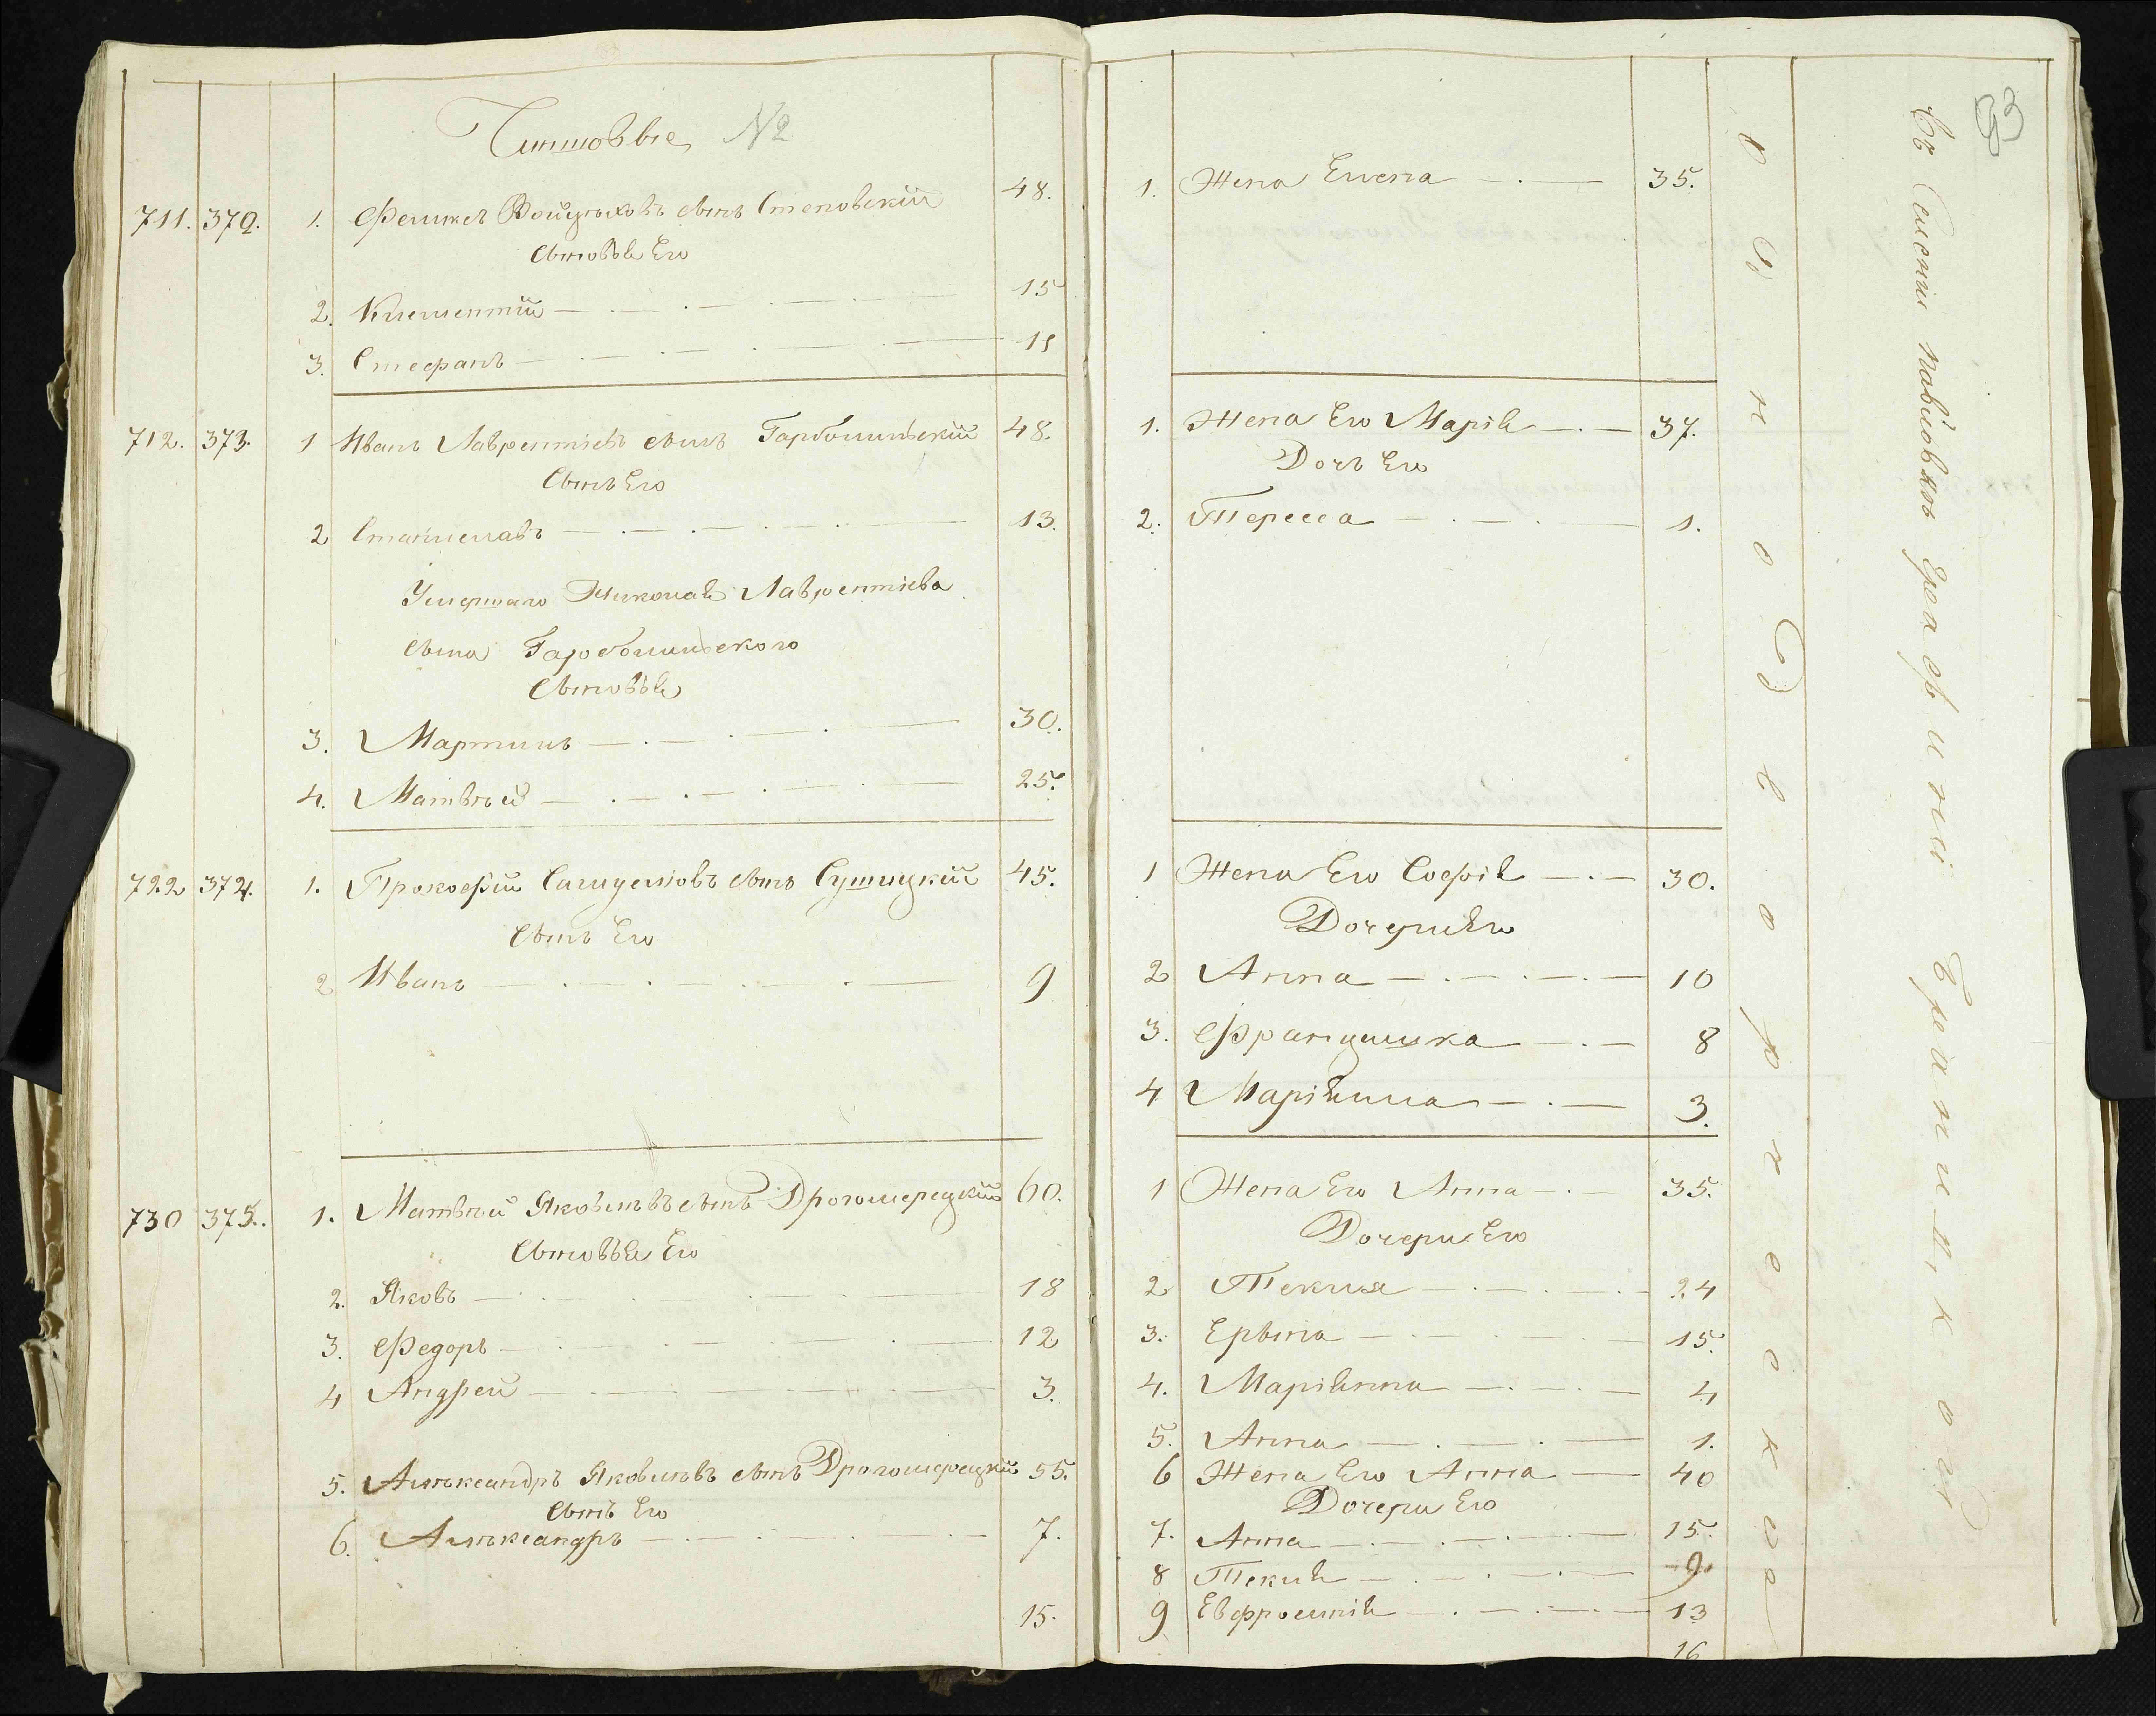 Чиншовые №2
711. 372. 1. Феликсъ сынъ Стековскій 48.
Сыновья Его
2. Клементій 15
3. Стефанъ 11
712. 373. 1 Иванъ Лаврентіевъ сынъ 48.
Сынъ Его
2 Станиславъ 13.
Умершаго Николая Лаврентіева
сына
Сыновья
3. Мартинъ 30.
4. Матвѣй 25.
722 374. 1. Прокофій сынъ Сушицкій 45.
Сынъ Его
2 Иванъ 9
730 375. 1. Матвѣй Яковлѣвъ сынъ Дрогомерецкій 60.
Сыновья Его
2. Яковъ 18
3. Федоръ 12
4 Андрей 3.
5. Алѣксандръ Яковлѣвъ сынъ Дрогомерецкій 55.
Сынъ Его
6. Алѣксандръ 7.
15.
93
1. Жена Елена 35.
1. Жена Его Марія 37.
Дочь Его
2. Тересса 1.
1 Жена Его Софія 30.
Дочери Его
2 Анна 10
3. Францишка 8
4 Маріянна 3.
1 Жена Его Анна 35.
Дочери Его
2 Текля 24
3. Ерына 15.
4. Маріянна 4
5. Анна 1.
6 Жена Его Анна 40
Дочери Его
7. Анна 15.
8 Текля 9
9 Евфросинія 13
16
однодворческа
Въ Селеніи Павловкѣ Графини Браницковй